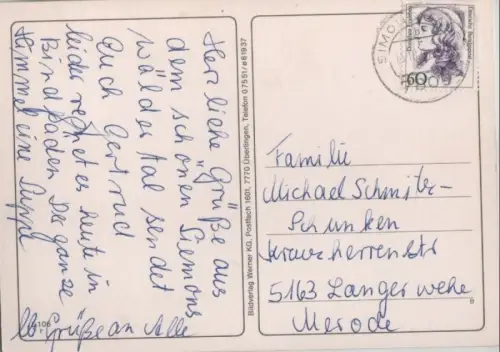 Herzliche Grüße aus
dem schönen Siemons
wälder Tal sendet
Euch Gertrud
leider regnet es heute in
Bindfäden Der ganze
Himmel eine Suppe
lb. Grüße an Alle
106
Bildverlag Werner KG, Postfach 1601, 7770 Überlingen, Telefon 07551/e61937
Deutsche Bundespost
60
SIMO
Familie
Michael Schmitz-
Schunken
Kreuzherrenstr
5163 Langerwehe
Merode